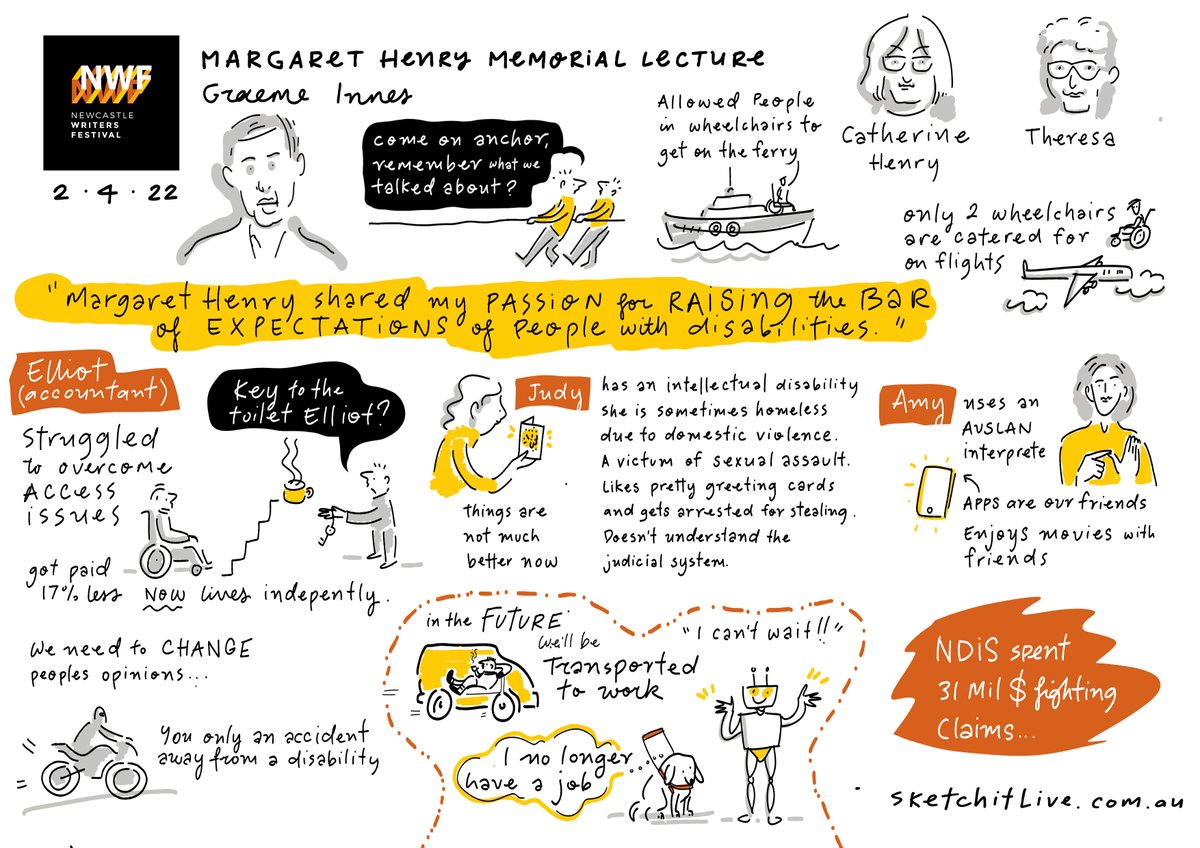 NWF
NEWCASTLE
WRITERS
FESTIVAL
2.4.22
MARGARET HENRY MEMORIAL LECTURE
Graeme Innes
come on anchor,
remember what we
talked about?
Allowed People
in wheelchairs to
get on the ferry
Catherine
Henry
Theresa
only 2 wheelchairs
are catered for
on flights
"Margaret Henry shared my PASSION for RAISING the BAR
of EXPECTATIONS of People with disabilities."
Elliot
(accountant)
Struggled
to overcome
ACCESS
issues
Key to the
toilet Elliot?
got paid
17% less NOW lives indepently.
Judy
things are
not much
better now
has an intellectual disability
she is sometimes homeless
due to domestic violence.
A victum of sexual assault.
Likes pretty greeting cards
and gets arrested for stealing.
Doesn't understand the
judicial system.
Amy
uses an
AUSLAN
interprete
Apps are our friends
Enjoys movies with
friends
We need to CHANGE
peoples opinions...
You only an accident
away from a disability
in the FUTURE
we'll be
Transported
to work
"I can't wait!!"
I no longer
have a job
NDiS spent
31 Mil $ fighting
Claims...
sketchitlive.com.au